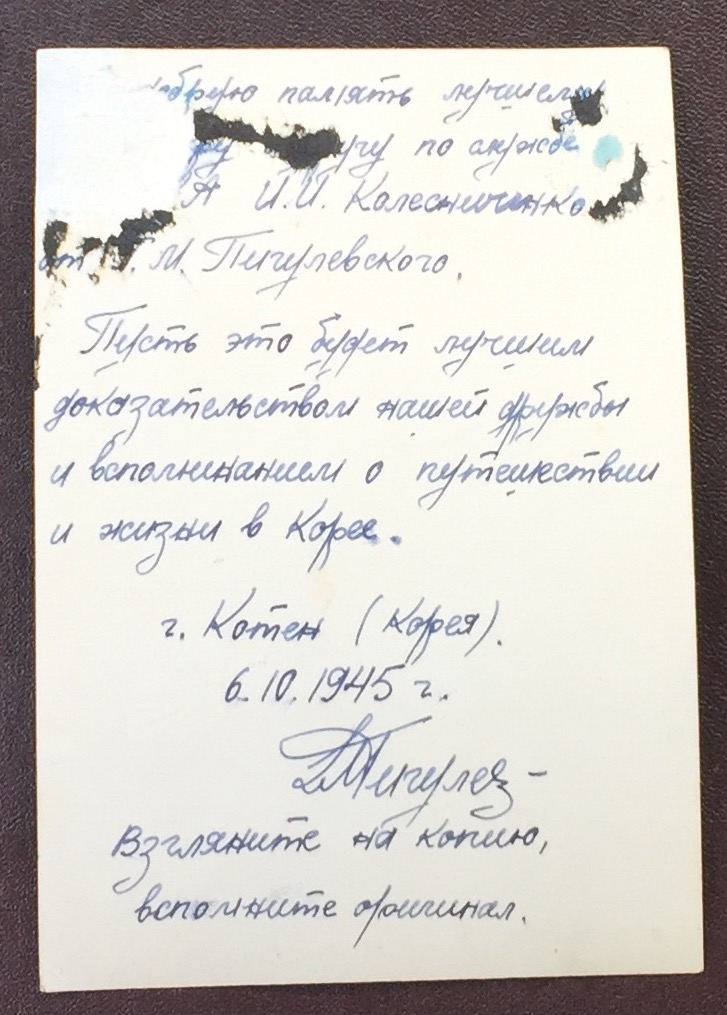 добрую память лучшему
другу по службе
И.И. Колесниченко
от М. Пигулевского.
Пусть это будет лучшим
доказательством нашей дружбы
и вспоминанием о путешествии
и жизни в Корее.
г. Котен (Корея).
6.10.1945 г.
Взгляните на копию,
вспомните оригинал.